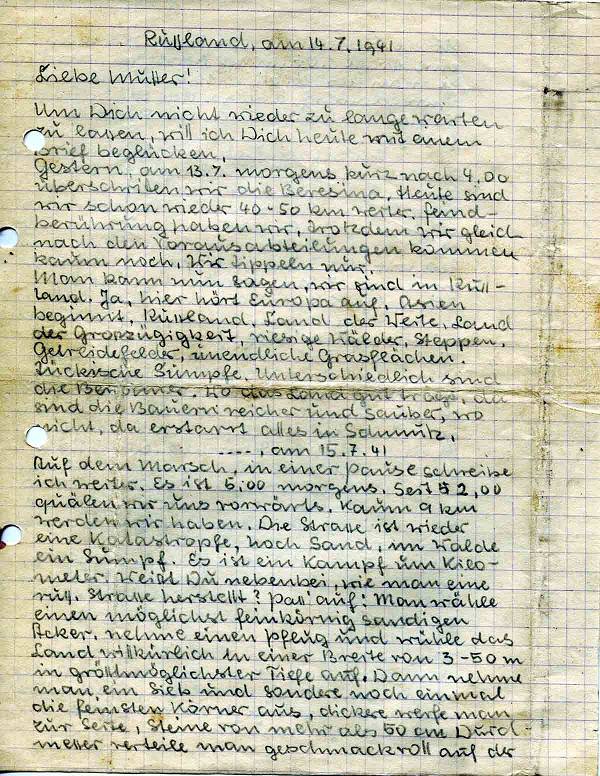 Russland, am 14.7.1941
Liebe Mutter!
Um Dich nicht wieder zu lange warten
zu lassen, will ich Dich heute mit einem
Brief beglücken.
Gestern, am 13.7. morgens kurz nach 4,00
überschritten wir die Beresina. Heute sind
wir schon wieder 40-50 km weiter. Feind-
berührung haben wir, trotzdem wir gleich
nach den Vorausabteilungen kommen
kaum noch. Wir tippeln nur.
Man kann nun sagen, wir sind in Russ-
land. Ja, hier hört Europa auf. Asien
beginnt, Russland. Land der Weite, Land
der Grosszügigkeit, riesige Wälder, Steppen,
Getreidefelder, unendliche Grasflächen.
Tückische Sümpfe. Unterschiedlich sind
die Bewohner. Wo das Land gut trägt, da
sind die Bauern reicher und sauber, wo
nicht, da erstarrt alles in Schmutz.
...., am 15.7.41
Auf dem Marsch, in einer Pause schreibe
ich weiter. Es ist 6,00 morgens. Seit 2,00
quälen wir uns vorwärts. Kaum 9 km
werden wir haben. Die Strasse ist wieder
eine Katastropfe, hoch Sand, im Walde
ein Sumpf. Es ist ein Kampf um Kilo-
meter. Weißt Du nebenbei, wie man eine
russ. Strasse herstellt? Pass auf: Man wähle
einen möglichst feinkörnig sandigen
Acker, nehme einen Pfleug und wühle das
Land willkürlich in einer Breite von 3-50 m
in grösstmöglichster Tiefe auf. Dann nehme
man ein Sieb und sondere noch einmal
die feinsten Körner aus, dickere werfe man
zur Seite, Steine von mehr als 50 cm Durch-
messer verteile man geschmackvoll auf der